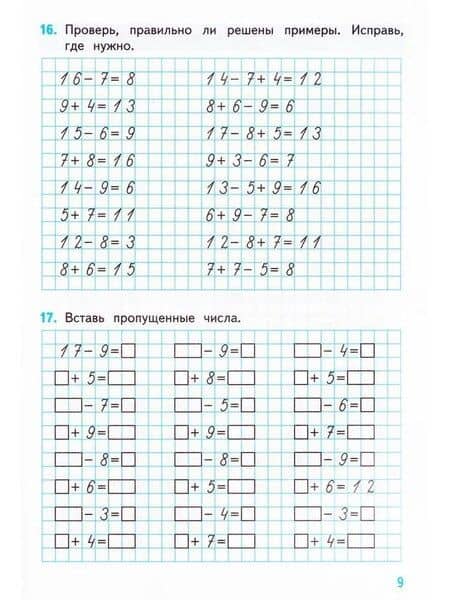 16. Проверь, правильно ли решены примеры. Исправь,
где нужно.
16-7=8 14-7+4=12
9+4=13 8+6-9=6
15-6=9 17-8+5=13
7+8=16 9+3-6=7
14-9=6 13-5+9=16
5+7=11 6+9-7=8
12-8=3 12-8+7=11
8+6=15 7+7-5=8
17. Вставь пропущенные числа.
17-9=□ □-9=□ □-4=□
□+5=□ □+8=□ □+5=□
□-7=□ □-5=□ □-6=□
□+9=□ □+9=□ □+7=□
□-8=□ □-8=□ □-9=□
□+6=□ □+5=□ □+6=12
□-3=□ □-4=□ □-3=□
□+4=□ □+7=□ □+4=□
9